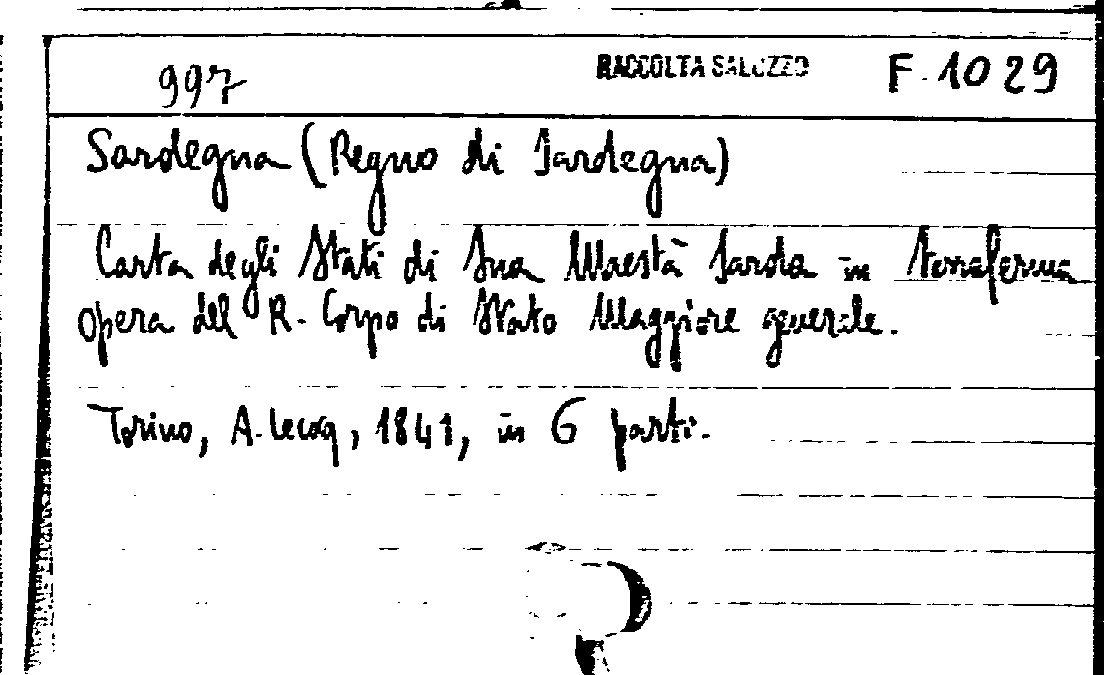 997 RACCOLTA SALUZZO F. 1029
Sardegna (Regno di Sardegna)
Carta degli Stati di Sua Maestà Sarda in terraferma
opera del R. Corpo di Stato Maggiore generale.
Torino, A. Lecoq, 1841, in 6 parti.